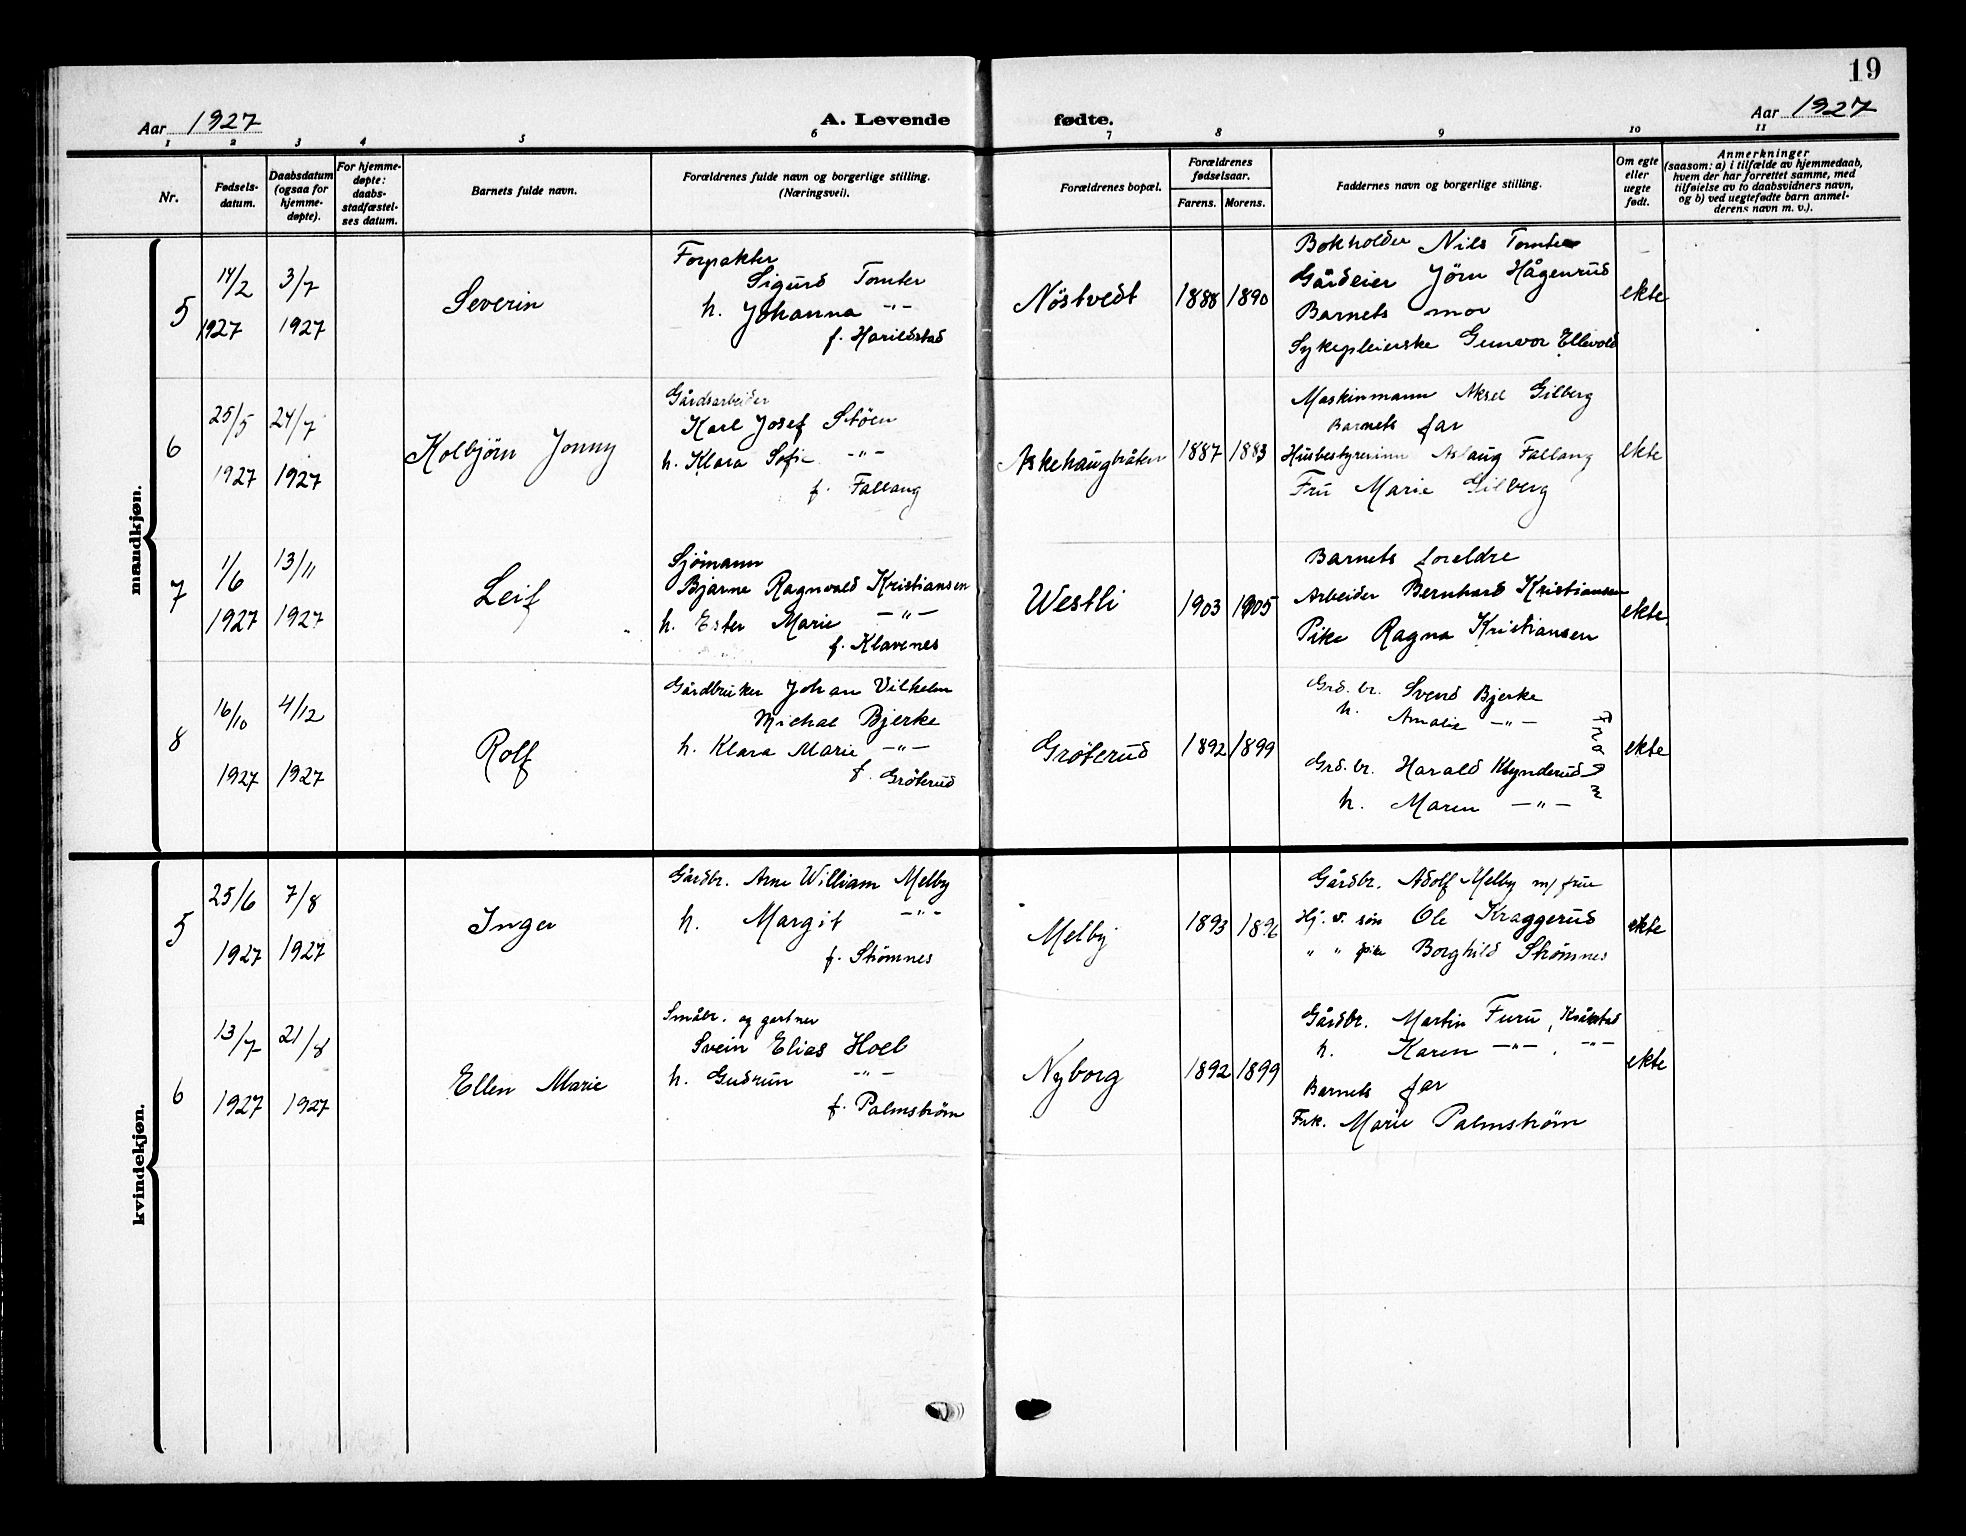 19
Aar 1927
A. Levende fødte.
Aar 1927
1 2 3 4 5 6 7 8 9 10 11
Nr.
Fødsels-
datum.
Daabsdatum
(ogsaa for
hjemme-
døpte).
For hjemme-
døpte:
daabs-
stadfæstel-
ses datum.
Barnets fulde navn.
Forældrenes fulde navn og borgerlige stilling.
(Næringsvei).
Forældrenes bopæl.
Forældrenes
fødselsaar.
Farens. Morens.
Faddernes navn og borgerlige stilling.
Om egte
eller
uegte
født.
Anmerkninger
(saasom: a) i tilfælde av hjemmedaab,
hvem der har forrettet samme, med
tilføielse av to daabsvidners navn,
og b) ved uegtefødte barn anmel-
derens navn m. v.).
mandkjøn.
5
14/2
1927
3/7
1927
Severin
Forpakter
Sigurd Tomter
h. Johanna -"-
f. Harildstad
Nöstvedt
1888 1890
Bokholder Nils Tomter
Gårdeier Jörn Hågenrud
Barnets mor
Sykepleierske Gunvor Ellevold
ekte
6
25/5
1927
24/7
1927
Kolbjörn Jonny
Gårdsarbeider
Karl Josef Stöen
h. Klara Sofie -"-
f. Fallang
Askehaugbråten
1887 1883
Maskinmann Aksel Gilberg
Barnets far
Husbestyrerinn Aslaug Fallang
Fru Marie Gilberg
ekte
7
1/6
1927
13/11
1927
Leif
Sjömann
Bjarne Ragnvald Kristiansen
h. Ester Marie -"-
f. Klavenes
Westli
1903 1905
Barnets foreldre
Arbeider Bernhard Kristiansen
Pike Ragna Kristiansen
ekte
8
16/10
1927
4/12
1927
Rolf
Gårdbruker Johan Vilhelm
Michael Bjerke
h. Klara Marie -"-
f. Gröterud
Gröterud
1892 1899
Grd. br. Svend Bjerke
h. Amalie -"-
Grd. br. Harald Klynderud
h. Maren -"-
ekte
kvindekjøn.
5
25/6
1927
7/8
1927
Inger
Gårdbr. Arne William Melby
h. Margit -"-
f. Strömnes
Melby
1893 1896
Gårdbr. Adolf Melby m/ frue
Hj. v. sön Ole Kraggerud
" " pike Borghild Strömnes
ekte
6
13/7
1927
21/8
1927
Ellen Marie
Småbr. og gartner
Svein Elias Hoel
h. Gudrun -"-
f. Palmström
Nyborg
1892 1899
Gårdbr. Martin Furu, Kråkstad
h. Karen -"-, -"-
Barnets far
Frk. Marie Palmström
ekte